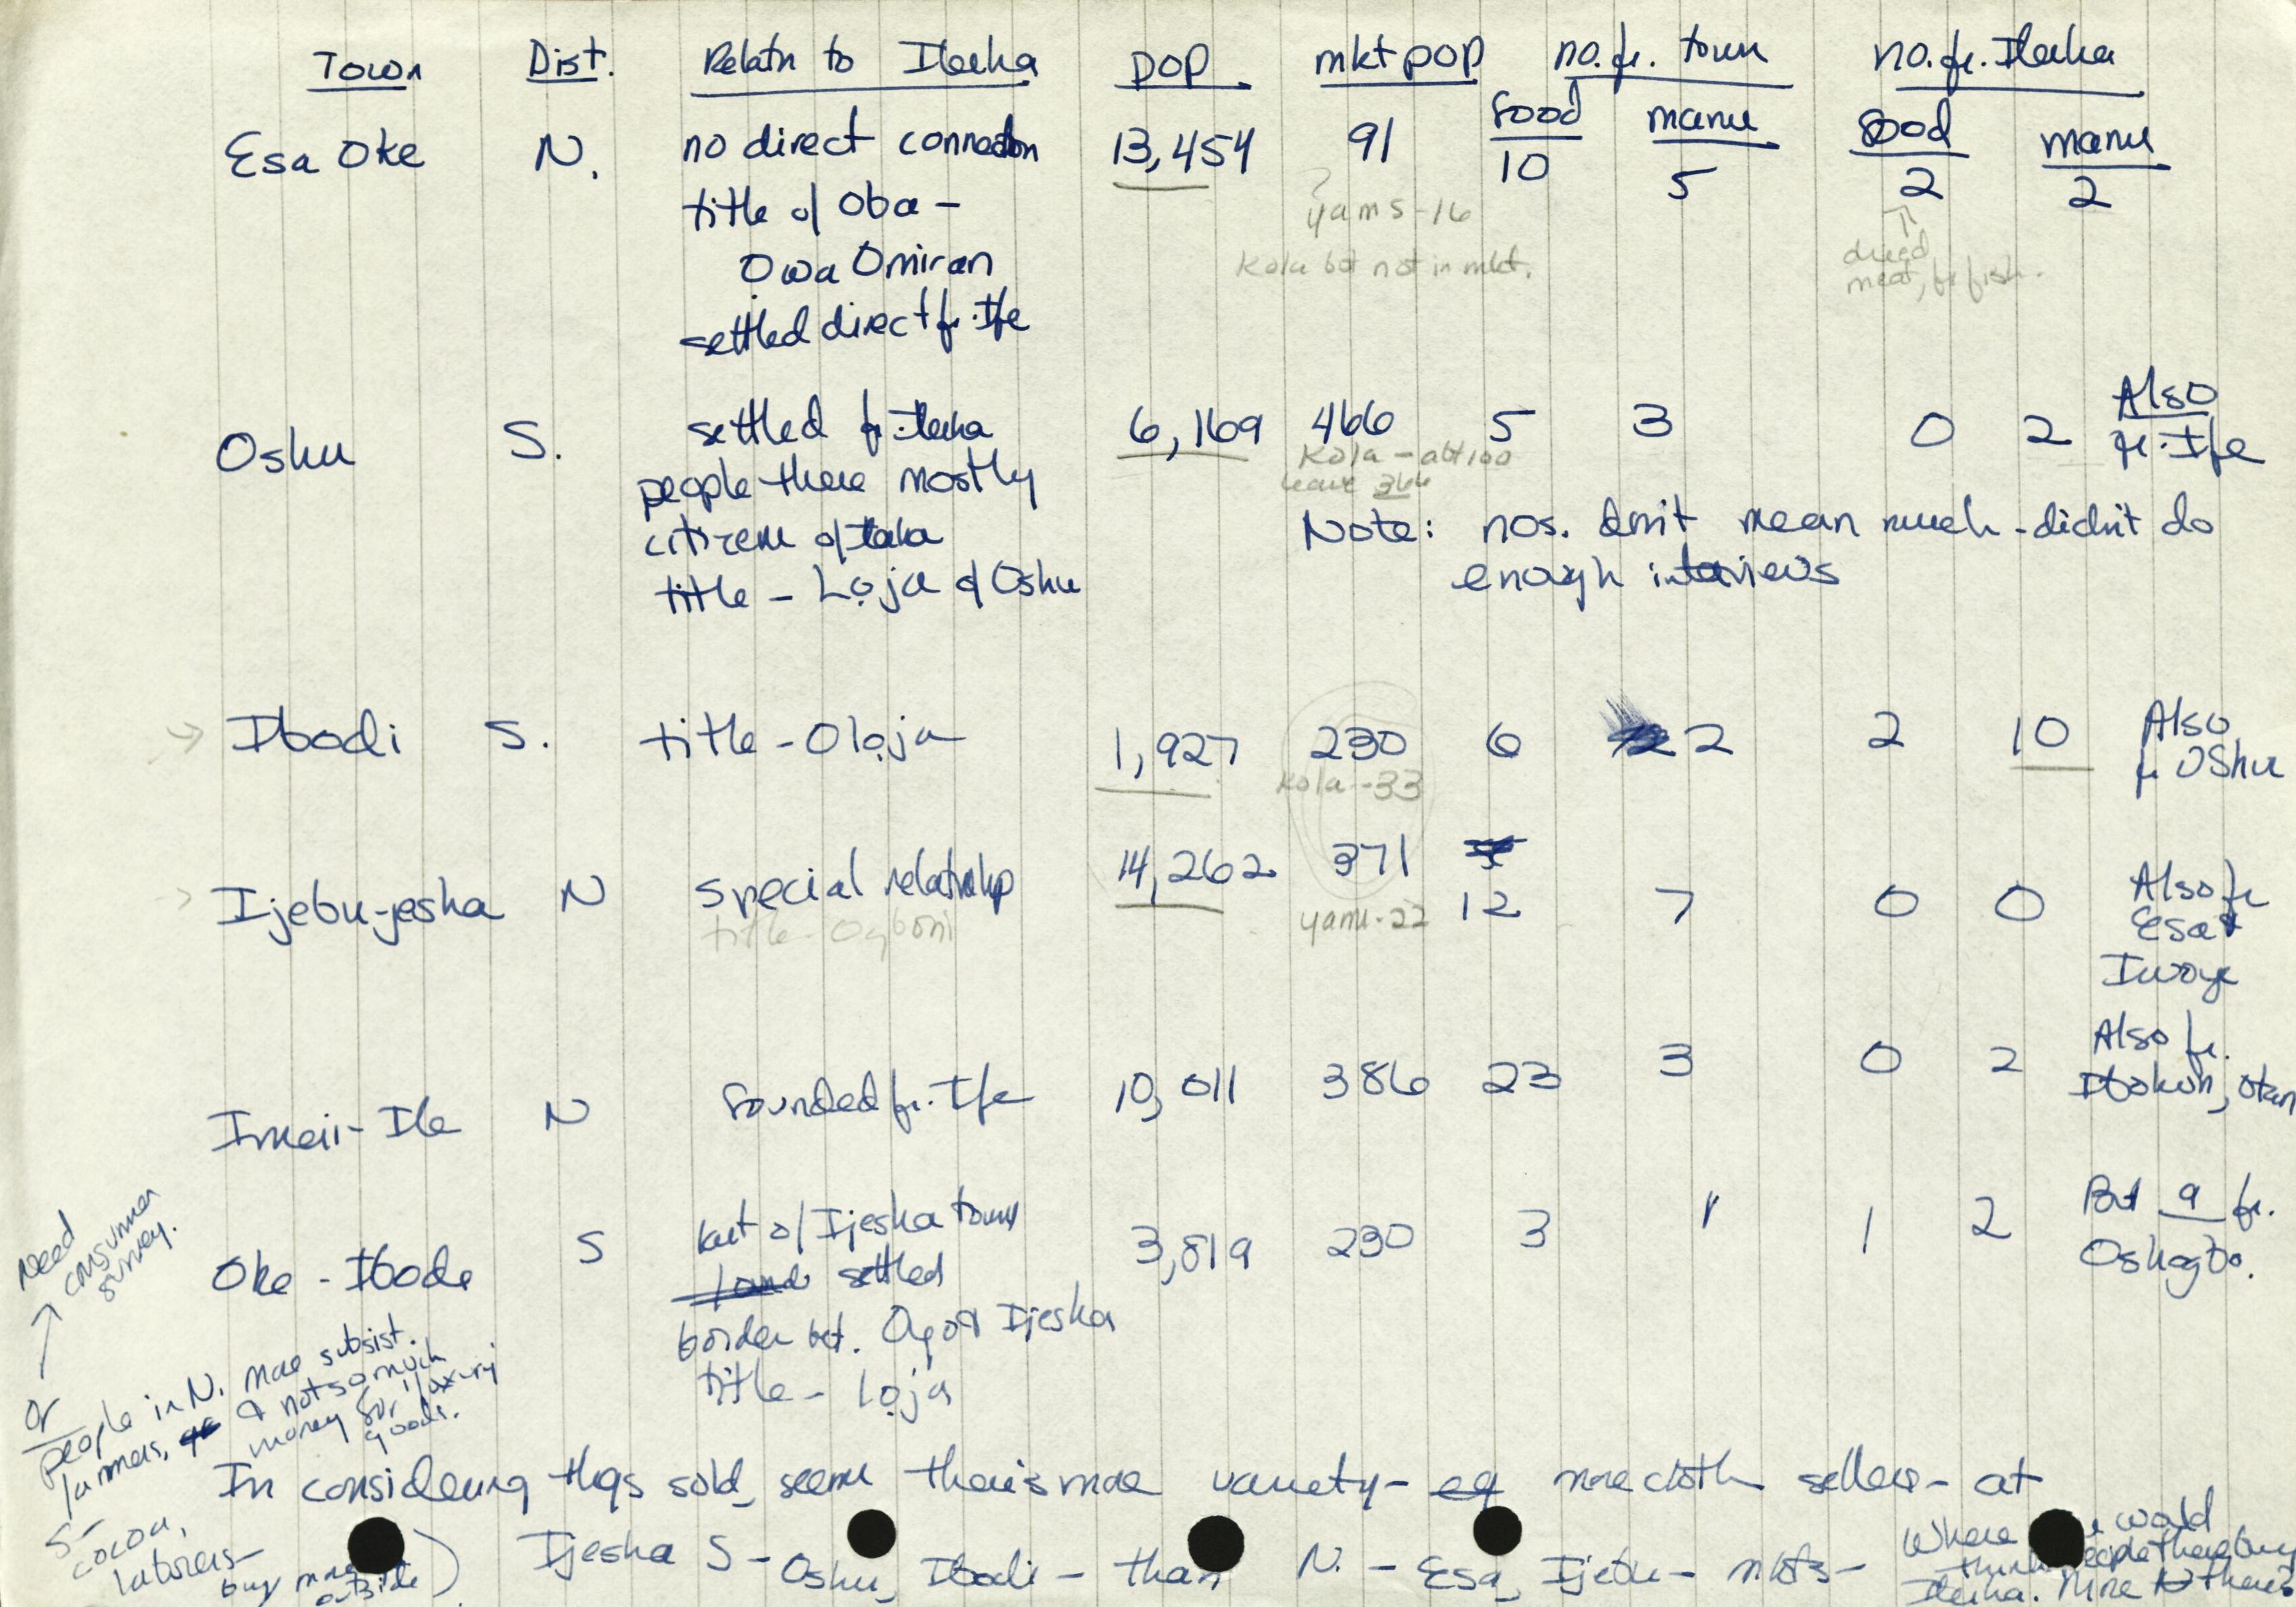 Town Dist. Relatn to Ilesha pop mkt pop no. fr. town no. fr. Ilesha
food manu food manu
Esa Oke N. no direct connection 13,454 91 10 5 2 2
title of Oba -
Owa Omiran
settled direct fr. Ife
yams - 16
Kola but not in mkt.
dried
meat, fr fish.
Oshu S. settled fr. Ilesha 6,169 466 5 3 0 2 Also
fr. Ife
people there mostly
citizens of Ilesha
title - Lọja of Oshu
Kola - abt 100
leave 366
Note: nos. don't mean much - didn't do
enough interviews
Ibodi S. title - Olọja 1,927 230 6 2 2 10 Also
fr Oshu
Kola - 33
Ijebu-jesha N special relatnship 14,262 371 12 7 0 0 Also fr
Esa &
Iwoye
title - Ogboni
yams - 22
Imesi-Ile N founded fr. Ife 10,011 386 23 3 0 2 Also fr.
Ibokun, Otan
Oke-Ibode S last of Ijesha towns 3,819 230 3 1 1 2 But 9 fr.
Oshogbo.
settled
border bet. Oyo & Ijesha
title - Lọja
need
consumer
survey.
or
people in N. more subsist.
farmers, & not so much
money for luxury
goods.
S -
cocoa,
laborers -
buy more
outside
In considering thgs sold, seems there's more variety - eg more cloth sellers - at
Ijesha S - Oshu, Ibodi - than N. - Esa, Ijebu - mkts -
Where would
think people there buy
Ilesha. More there